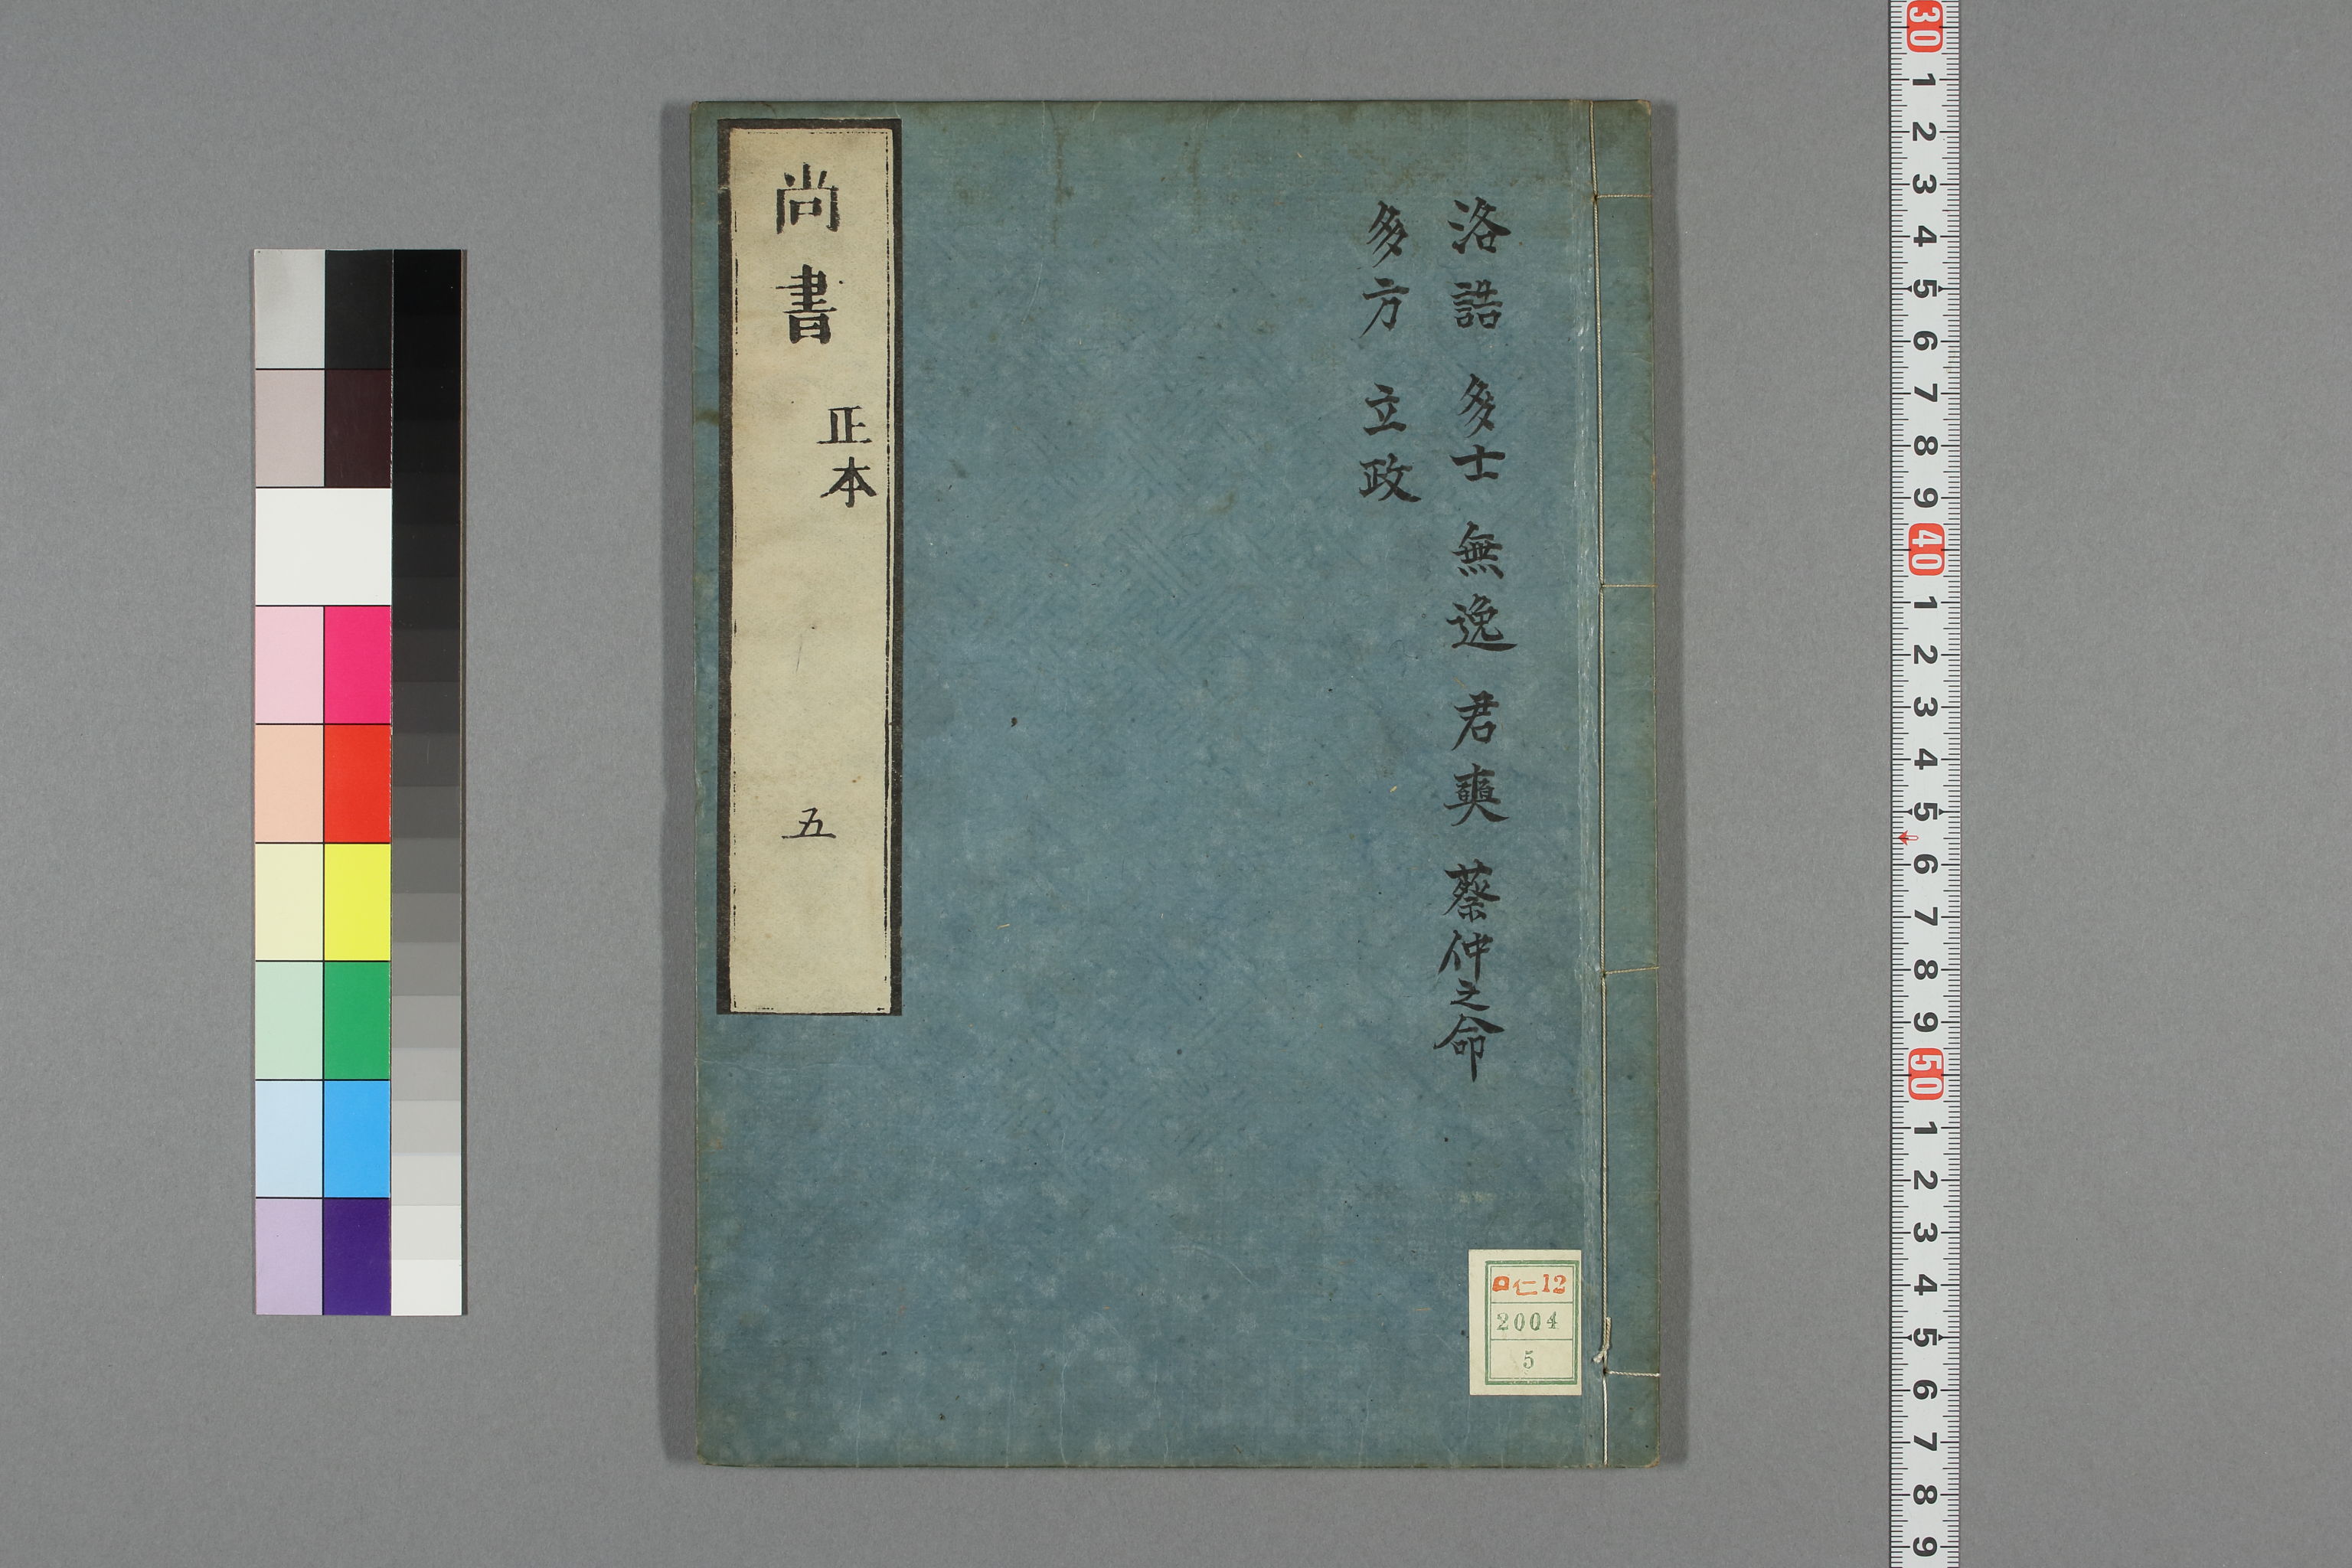 洛誥 多士 無逸 君奭 蔡仲之命
多方 立政
尚書 正本 五
口仁12
2004
5
30 1 2 3 4 5 6 7 8 9 40 1 2 3 4 5 6 7 8 9 50 1 2 3 4 5 6 7 8 9